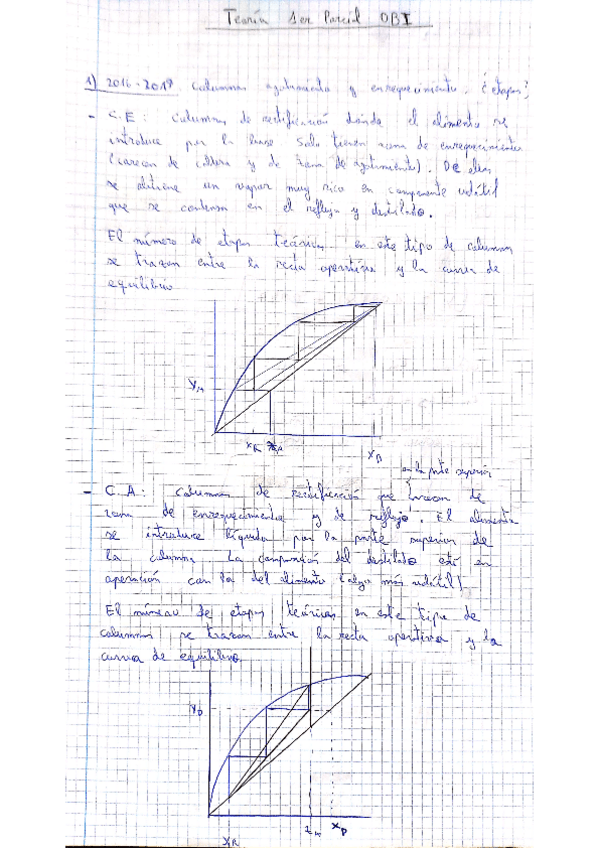 Teoría 1er Parcial OBI
1) 2016-2017 Columnas agotamiento y enriquecimiento. ¿etapas?
- C.E: Columnas de rectificación donde el alimento se
introduce por la base. Solo tienen zona de enriquecimiento
(carecen de caldera y de zona de agotamiento). De ellas
se obtiene un vapor muy rico en componente volátil
que se condensa en el reflujo y destilado.
El número de etapas teóricas en este tipo de columnas
se trazan entre la recta operativa y la curva de
equilibrio
xR
xD
en la parte superior
- C.A: Columnas de rectificación que carecen de
zona de enriquecimiento y de reflujo. El alimento
se introduce líquido por la parte superior de
la columna. La composición del destilado está en
operación con la del alimento (algo más volátil)
El número de etapas teóricas en este tipo de
columnas se trazan entre la recta operativa y la
curva de equilibrio.
yD
xD
xR